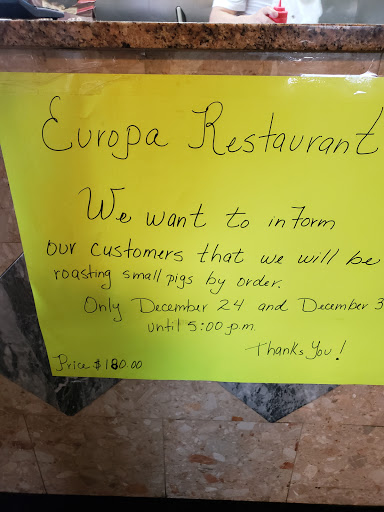 Europa Restaurant
We want to inform
our customers that we will be
roasting small pigs by order.
Only December 24 and December 3
until 5:00 p.m.
Thanks You!
Price $180.00